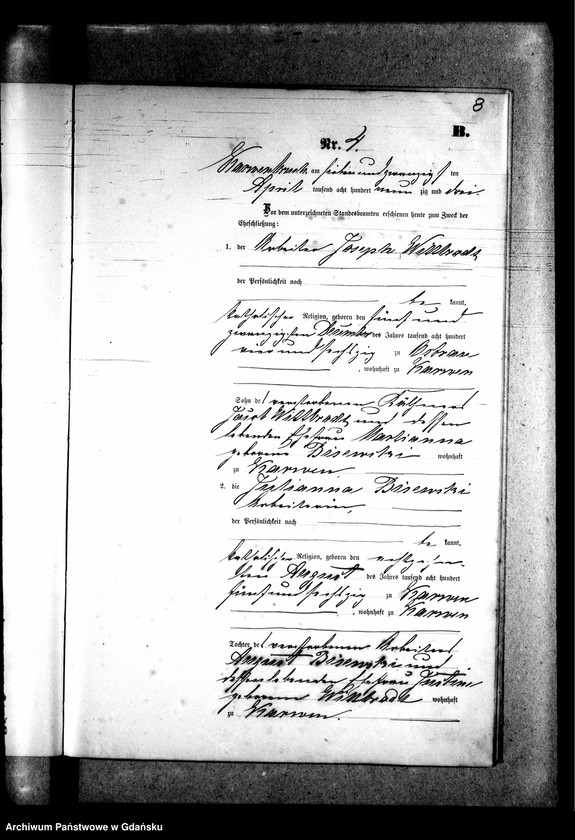 8
B.
Nr. 4.
Karwenbruch am sieben und zwanzigsten
April tausend acht hundert neun zig und drei.
Vor dem unterzeichneten Standesbeamten erschienen heute zum Zweck der
Eheschließung:
1. der Arbeiter Joseph Willbrodt
der Persönlichkeit nach
be kannt,
katholischer Religion, geboren den fünf und
zwanzigsten Dezember des Jahres tausend acht hundert
vier und sechszig zu Ostrau
, wohnhaft zu Karwen
Sohn des verstorbenen Käthners
Willbrodt und dessen
lebenden Ehefrau Marianna
geborene Bisewski wohnhaft
zu Karwen
2. die Julianna Bisewski
Arbeiterin,
der Persönlichkeit nach
be kannt,
katholischer Religion, geboren den achtzehn-
ten August des Jahres tausend acht hundert
fünf und sechszig zu Karwen
, wohnhaft zu Karwen
Tochter des verstorbenen Arbeiters
August Bisewski und
dessen lebenden Ehefrau Justine
geborene Willbrodt wohnhaft
zu Karwen.
Archiwum Państwowe w Gdańsku